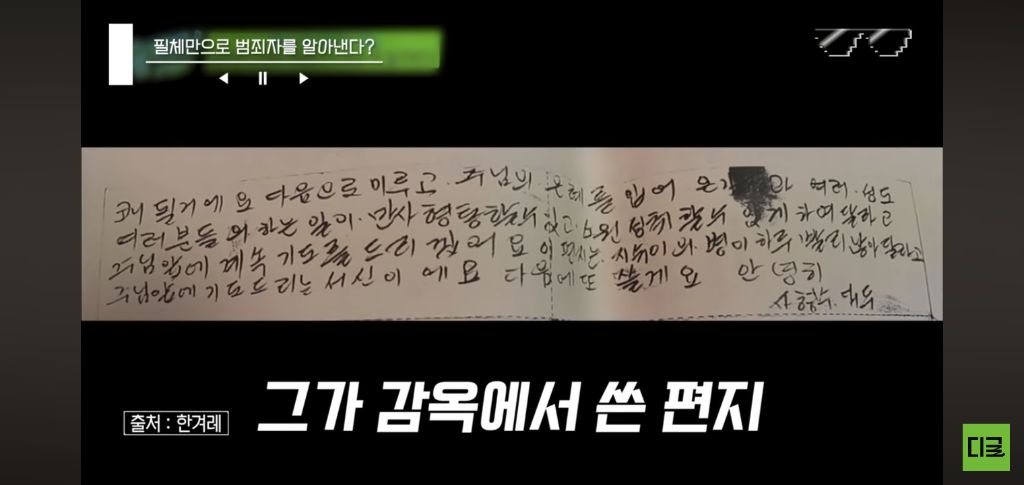 필체만으로 범죄자를 알아낸다?
코니 될거에요 다음으로 미루고. 주님의 은혜를 입어 온 과 여러. 성도
여러분들 의 하는 일이. 만사 형통할수 있고. 소원 성취 할수 있게 하여 달라고
주님앞에 계속 기도를 드리 겠어 요 이 편지는. 의 병이 하루 빨리 낳아 달라고
주님앞에 기도드리는 서신이 에요 다음에또 쓸게요 안녕히
사형수.
그가 감옥에서 쓴 편지
출처 : 한겨레
디글